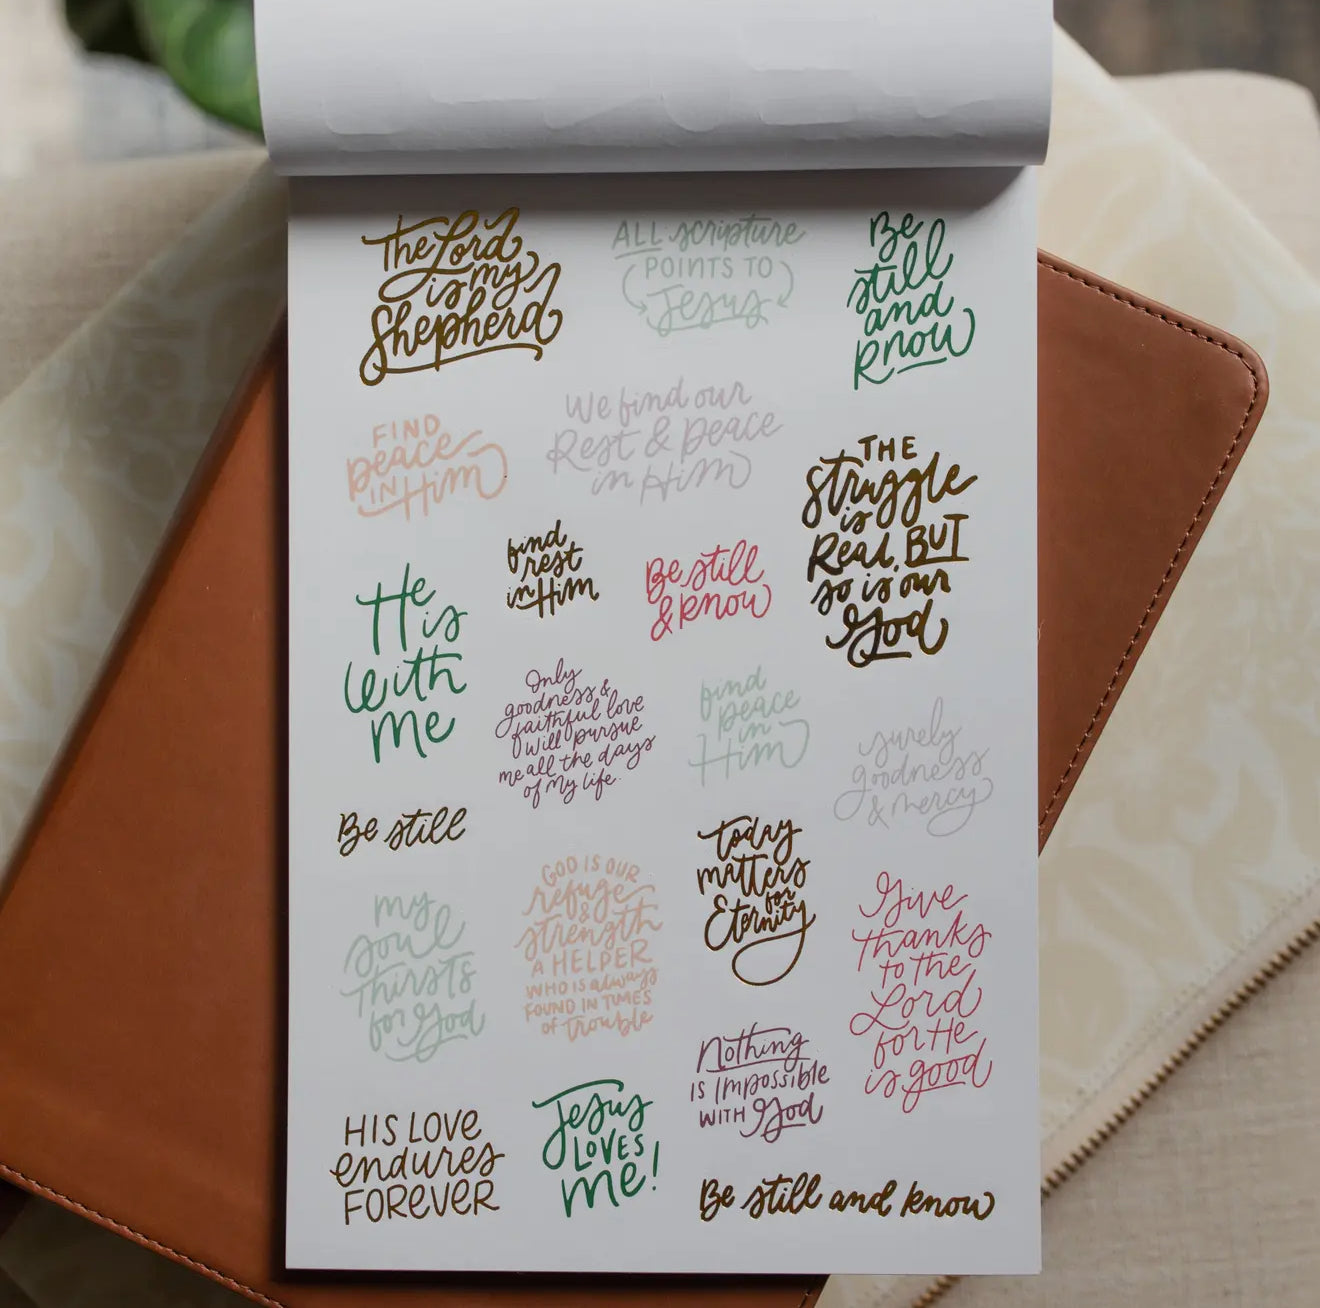 The Lord
is my
Shepherd
ALL scripture
POINTS TO
Jesus
Be
still
and
know
FIND
peace
IN Him
We find our
Rest & peace
in Him
THE
struggle
is
Real, BUT
so is our
God
find
rest
in Him
Be still
& know
He
is
with
me
Only
goodness &
faithful love
will pursue
me all the days
of my life.
find
peace
in
Him
surely
goodness
& mercy
Be still
today
matters
for
Eternity
my
soul
thirsts
for God
GOD IS OUR
refuge
&
strength
A HELPER
WHO IS always
FOUND IN TIMES
of trouble
Give
thanks
to the
Lord
for He
is good
Nothing
IS Impossible
WITH God
HIS LOVE
endures
FOREVER
Jesus
LOVES
me!
Be still and know